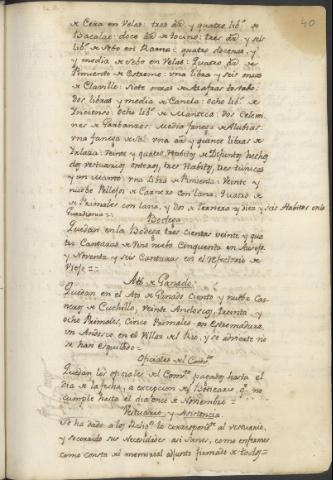 40
de Cera en Velas: tres @s y quatro lib.s de
Bacalao: doce @s de tocino: tres @s y seis
lib.s de Sebo en Rama: quatro docenas, y
y media de Sebo en Velas: Quatro @s de
Pimiento de Estremo: una libra y seis onzas
de Clavillo: siete onzas de Azafran tostado:
dos libras y media de Canela: ocho lib.s de
Incienso: ocho lib.s de Manteca: dos Celemi-
nes de Garbanzos: Media fanega de Alubias:
una fanega de Sal: una @ y quince libras de
veinte y quatro Habitos de Difunto, hechos
dos vestuarios enteros, tres Habitos, tres tunicas
y un Manto: una Libra de Pimienta: Veinte y
nuebe Pellejos de Carnero con lana: Quatro de
de Primales con lana, y dos de Ternera, y diez y seis Habitos en la
Guardiania =
Bodega
Quedan en la Bodega tres cientas veinte y qua-
tro Cantaras de Vino nuebo Cinquenta en
y Noventa y seis Cantaras en el refectorio de
Viejo =
Ato de Ganado.
Quedan en el Ato de Ganado Ciento y nuebe Car-
neros de Cuchillo, veinte Andoscos, treinta y
ocho Primales, Cinco Primales en Estremadura,
un Andosco en el Villar del Rio, y se advierte no
se han esquilado =
Oficiales del Conv.to
Quedan los oficiales del Conv.to pagados hasta el
dia de la fecha, a excepcion del Boticario q.e no
cumple hasta el dia once de Noviembre =
Vestuario, y Asistencia.
Se ha dado a los Relig.s lo correspond.te al vestuario,
y socorrido sus Necesidades asi sanos, como enfermos
como consta del memorial adjunto firmado de todos =